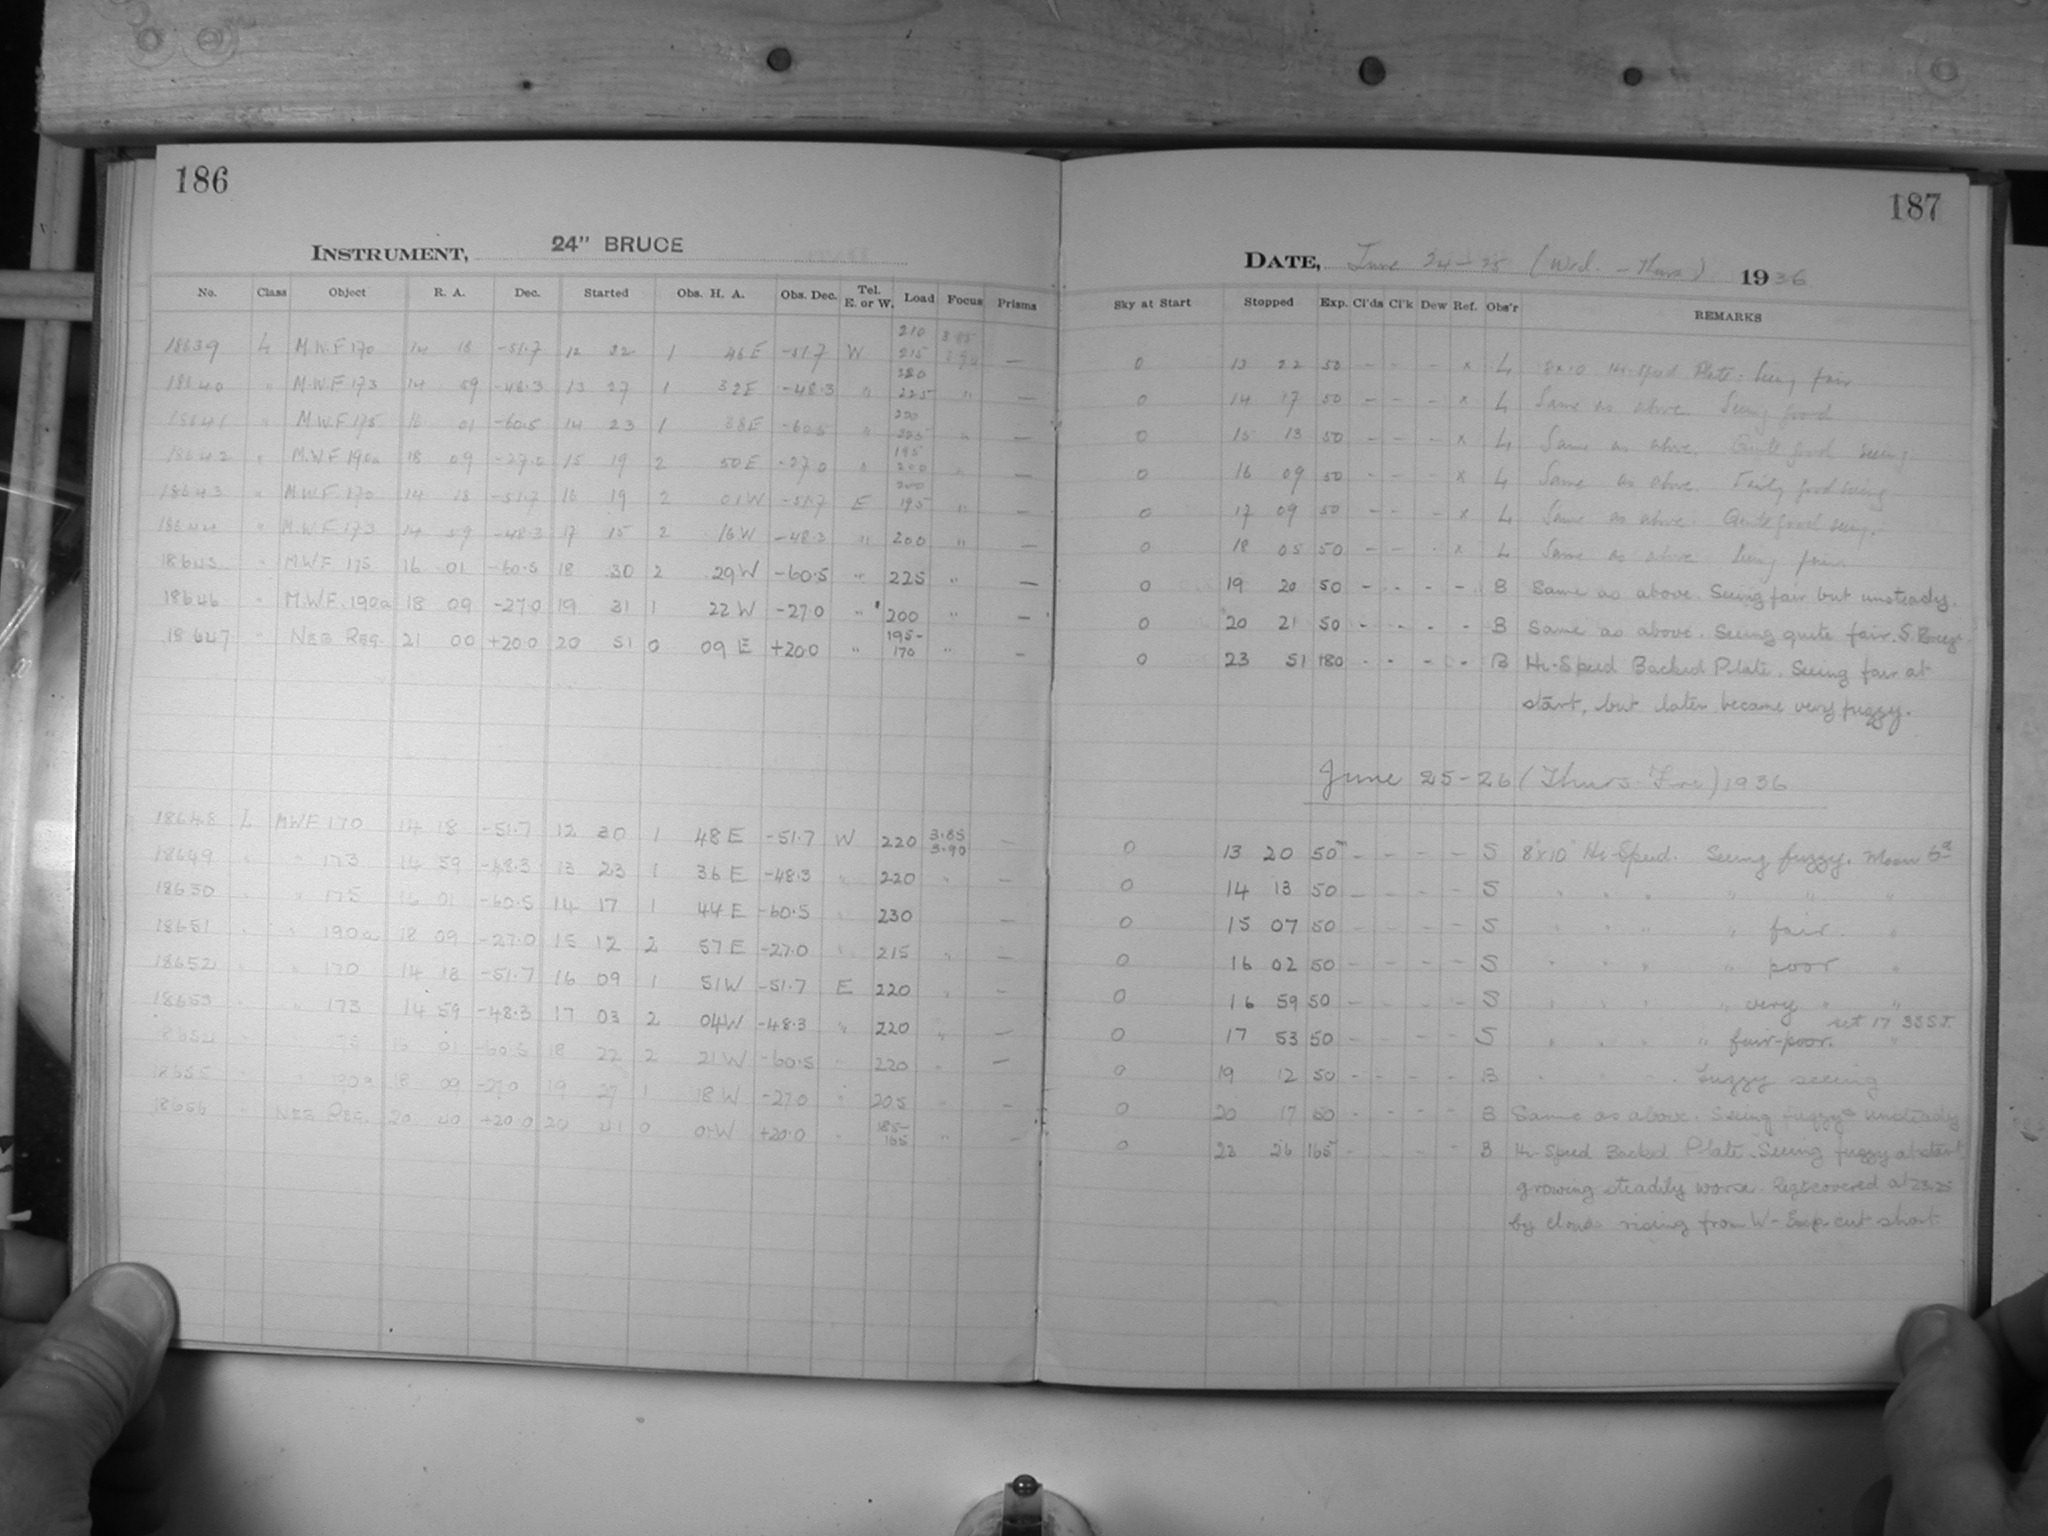 186
INSTRUMENT, 24" BRUCE
No. Class Object R. A. Dec. Started Obs. H. A. Obs. Dec. Tel. E. or W. Load Focus Prisms
18639 L M.W.F 170 14 18 -51.7 12 32 1 46 E -51.7 W 210 215 3.85 3.90 —
18640 " M.W.F 173 14 59 -48.3 13 27 1 32 E -48.3 " 220 225 " —
18641 " M.W.F 175 16 01 -60.5 14 23 1 38 E -60.5 " 220 225 " —
18642 " M.W.F 190a 18 09 -27.0 15 19 2 50 E -27.0 " 195 200 " —
18643 " M.W.F. 170 14 18 -51.7 16 19 2 01 W -51.7 E 200 195 " —
18644 " M.W.F 173 14 59 -48.3 17 15 2 16 W -48.3 " 200 " —
18645 " M.W.F 175 16 01 -60.5 18 30 2 29 W -60.5 " 225 " —
18646 " M.W.F. 190a 18 09 -27.0 19 31 1 22 W -27.0 " 200 " —
18647 " NEB REG. 21 00 +20.0 20 51 0 09 E +20.0 " 195- 170 " —
18648 L MWF 170 14 18 -51.7 12 30 1 48 E -51.7 W 220 3.85 3.90 —
18649 " " 173 14 59 -48.3 13 23 1 36 E -48.3 " 220 " —
18650 " " 175 16 01 -60.5 14 17 1 44 E -60.5 " 230 —
18651 " " 190a 18 09 -27.0 15 12 2 57 E -27.0 " 215 " —
18652 " " 170 14 18 -51.7 16 09 1 51 W -51.7 E 220 " —
18653 " " 173 14 59 -48.3 17 03 2 04 W -48.3 " 220 " —
18654 75 16 01 -60.5 18 22 2 21 W -60.5 " 220 " —
18655 " 190a 18 09 -27.0 19 27 1 18 W -27.0 " 205 " —
18656 " NEB REG. 20 +20.0 20 41 0 W +20.0 " 185- 165 " —
187
DATE, June 24-25 (Wed. - Thurs) 1936
Sky at Start Stopped Exp. Cl'ds Cl'k Dew Ref. Obs'r REMARKS
0 13 22 50 - - - x L 8x10 Hi-Speed Plate. Seeing fair
0 14 17 50 - - - x L Same as above. Seeing good
0 15 13 50 - - - x L Same as above. Quite good seeing
0 16 09 50 - - - x L Same as above. Fairly good seeing
0 17 09 50 - - - x L Same as above. Quite good seeing.
0 18 05 50 - - - x L Same as above. Seeing fair
0 19 20 50 - - - - B Same as above. Seeing fair but unsteady.
0 20 21 50 - - - - B Same as above. Seeing quite fair. S. Breeze
0 23 51 180 - - - - B Hi-Speed Backed Plate. Seeing fair at
start, but later became very fuzzy.
June 25-26 (Thurs-Fri) 1936
0 13 20 50m - - - - S 8"x10" Hi-Speed. Seeing fuzzy. Moon 6d
0 14 13 50 - - - - S " " " " " "
0 15 07 50 - - - - S " " " " fair "
0 16 02 50 - - - - S " " " " poor "
0 16 59 50 - - - - S " " " " very " "
set 17 33 S.T.
0 17 53 50 - - - - S " " " " fair-poor. "
0 19 12 50 - - - - B " " " Fuzzy seeing
0 20 17 50 - - - - B Same as above. Seeing fuzzy & unsteady
0 23 26 165 - - - - B Hi-Speed Backed Plate. Seeing fuzzy at start
growing steadily worse. covered at 23.25
by clouds rising from W - Exp. cut short